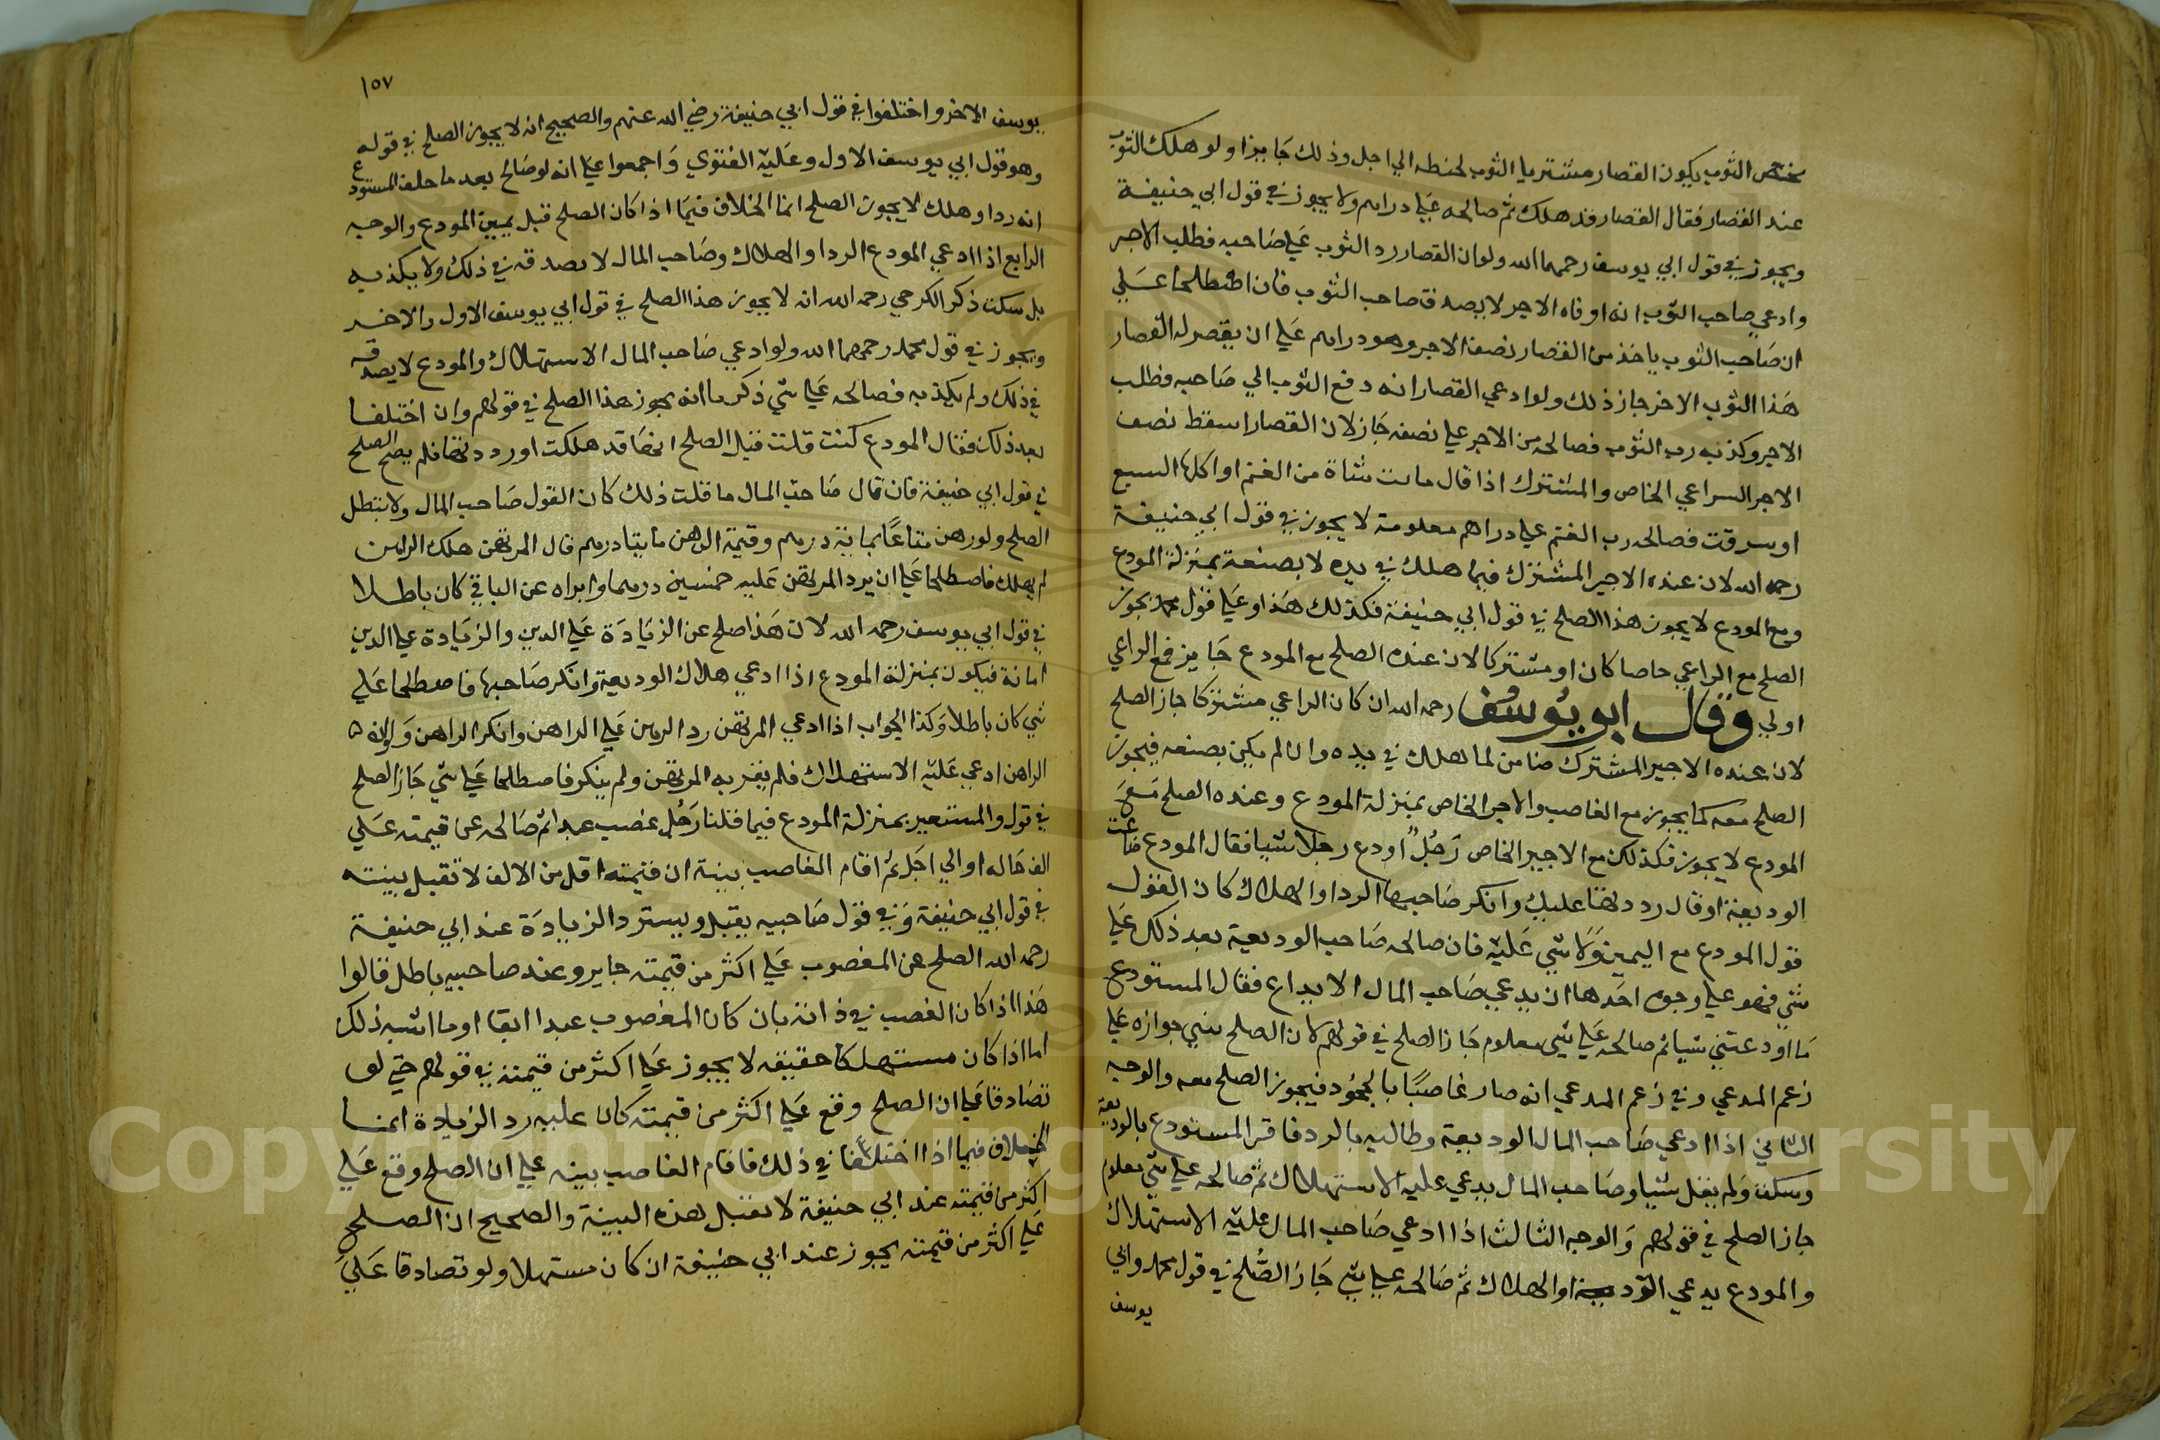 بخصص الثوب يكون القصار مشتريا الثوب لحنطه الي اجل وذلك جايزا ولو هلك الثوب
عند القصار فقال القصار قد هلك ثم صالحه علي دراهم ولا يجوز في قول ابي حنيفة
ويجوز في قول ابي يوسف رحمهما الله ولو ان القصار رد الثوب علي صاحبه فطلب الاجر
وادعي صاحب الثوب انه اوفاه الاجر لا يصدق صاحب الثوب فان اصطلحا علي
ان صاحب الثوب ياخذ من القصار نصف الاجر وهو دراهم علي ان يقصر له القصار
هذا الثوب الاخر جاز ذلك ولو ادعي القصار انه دفع الثوب الي صاحبه فطلب
الاجر وكذبه رب الثوب فصالحه من الاجر علي نصفه جاز لان القصار اسقط نصف
الاجر الراعي الخاص والمشترك اذا قال ماتت شاة من الغنم او اكلها السبع
او سرقت فصالحه رب الغنم علي دراهم معلومة لا يجوز في قول ابي حنيفة
رحمه الله لان عنده الاجير المشترك فيما هلك في يده لا بصنعه بمنزلة المودع
ومع المودع لا يجوز هذا الصلح في قول ابي حنيفة فكذلك هذا وعلي قول محمد يجوز
الصلح مع الراعي خاصا كان او مشتركا لان عنده الصلح مع المودع جايز فمع الراعي
اولي وقال ابو يوسف رحمه الله ان كان الراعي مشتركا جاز الصلح
لان عنده الاجير المشترك ضامن لما هلك في يده وان لم يكن بصنعه فيجوز
الصلح معه كما يجوز مع الغاصب والاجير الخاص بمنزلة المودع وعنده الصلح مع
المودع لا يجوز فكذلك مع الاجير الخاص رجل اودع رجلا شيا فقال المودع ضاعت
الوديعة او قال رددتها عليك وانكر صاحبها الرد او الهلاك كان القول
قول المودع مع اليمين ولا شي عليه فان صالحه صاحب الوديعة بعد ذلك علي
شي فهو علي وجوه احدها ان يدعي صاحب المال الايداع فقال المستودع
ما اودعتني شيا ثم صالحه علي شي معلوم جاز الصلح في قولهم لان الصلح يبني جوازه علي
زعم المدعي وفي زعم المدعي انه صار غاصبا بالجحود فيجوز الصلح معه والوجه
الثاني اذا ادعي صاحب المال الوديعة وطالبه بالرد فاقر المستودع بالوديعة
وسكت ولم يقل شيا وصاحب المال يدعي عليه الاستهلاك ثم صالحه علي شي معلوم
جاز الصلح في قولهم والوجه الثالث اذا ادعي صاحب المال عليه الاستهلاك
والمودع يدعي الرد او الهلاك ثم صالحه علي شي جاز الصلح في قول محمد وابي
يوسف
١٥٧
يوسف الاخر واختلفوا في قول ابي حنيفة رضي الله عنهم والصحيح انه لا يجوز الصلح في قوله
وهو قول ابي يوسف الاول وعليه الفتوي واجمعوا علي انه لو صالح بعد ما حلف المستودع
انه رد او هلك لا يجوز الصلح انما الخلاف فيما اذا كان الصلح قبل يمين المودع والوجه
الرابع اذا ادعي المودع الرد او الهلاك وصاحب المال لا يصدقه في ذلك ولا يكذبه
بل سكت ذكر الكرخي رحمه الله انه لا يجوز هذا الصلح في قول ابي يوسف الاول والاخر
ويجوز في قول محمد رحمهما الله ولو ادعي صاحب المال الاستهلاك والمودع لا يصدقه
في ذلك ولم يكذبه فصالحه علي شي ذكرنا انه يجوز هذا الصلح في قولهم وان اختلفا
بعد ذلك فقال المودع كنت قلت قبل الصلح انها قد هلكت او رددتها فلم يصح الصلح
في قول ابي حنيفة فان قال صاحب المال ما قلت ذلك كان القول صاحب المال ولا يبطل
الصلح ولو رهن متاعا بماية درهم وقيمة الرهن مايتا درهم قال المرتهن هلك الراهن
لم يهلك فاصطلحا علي ان يرد المرتهن عليه خمسين درهما وابراه عن الباقي كان باطلا
في قول ابي يوسف رحمه الله لان هذا صلح عن الزيادة علي الدين والزيادة علي الدين
امانة فيكون بمنزلة المودع اذا ادعي هلاك الوديعة وانكر صاحبها فاصطلحا علي
شي كان باطلا وكذا الجواب اذا ادعي المرتهن رد الرهن علي الراهن وانكر الراهن ولو ان
الراهن ادعي عليه الاستهلاك فلم يقر به المرتهن ولم ينكر فاصطلحا علي شي جاز الصلح
في قول والمستعير بمنزلة المودع فيما قلنا رجل غصب عبدا ثم صالحه عن قيمته علي
الف حاله او الي اجل ثم اقام الغاصب بينة ان قيمته اقل من الالف لا تقبل بينته
في قول ابي حنيفة وفي قول صاحبيه يقبل ويسترد الزيادة عند ابي حنيفة
رحمه الله الصلح عن المغصوب علي اكثر من قيمته جايز وعند صاحبيه باطل قالوا
هذا اذا كان الغصب في ذاته بان كان المغصوب عبدا ابقا او ما اشبه ذلك
اما اذا كان مستهلكا حقيقه لا يجوز علي اكثر من قيمته في قولهم حتي لو
تصادقا علي ان الصلح وقع علي اكثر من قيمته كان عليه رد الزيادة انما
الخلاف فيما اذا اختلفا في ذلك فاقام الغاصب بينه علي ان الصلح وقع علي
اكثر من قيمته عند ابي حنيفة لا تقبل هذه البينة والصحيح ان الصلح
علي اكثر من قيمته يجوز عند ابي حنيفة ان كان مستهلا ولو تصادقا علي
Copyright © King Saud University